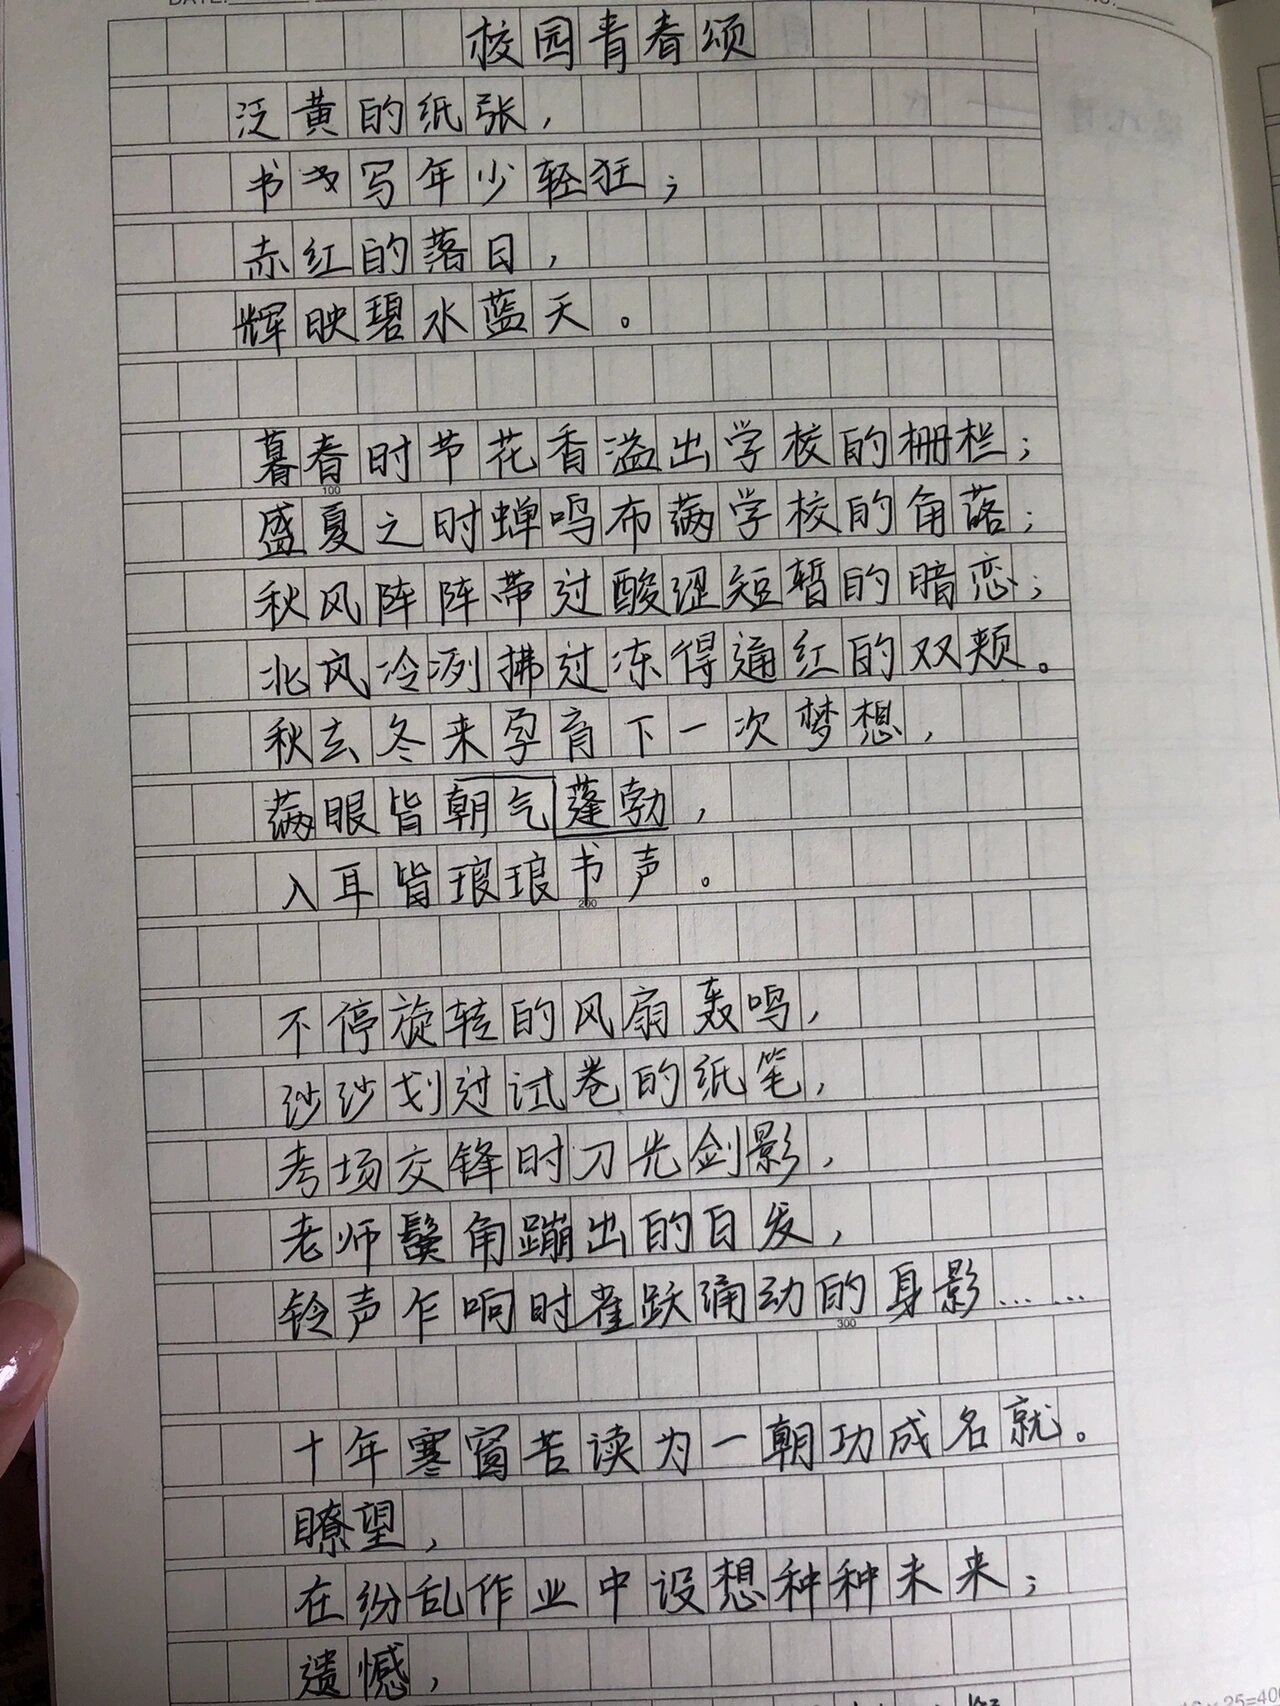 校园青春颂
泛黄的纸张，
书写年少轻狂；
赤红的落日，
辉映碧水蓝天。
暮春时节花香溢出学校的栅栏；
盛夏之时蝉鸣布满学校的角落；
秋风阵阵带过酸涩短暂的暗恋；
北风冷冽拂过冻得通红的双颊。
秋去冬来孕育下一次梦想，
满眼皆朝气蓬勃，
入耳皆琅琅书声。
不停旋转的风扇轰鸣，
沙沙划过试卷的纸笔，
考场交锋时刀光剑影，
老师鬓角蹦出的白发，
铃声乍响时雀跃涌动的身影……
十年寒窗苦读为一朝功成名就。
瞭望，
在纷乱作业中设想种种未来；
遗憾，